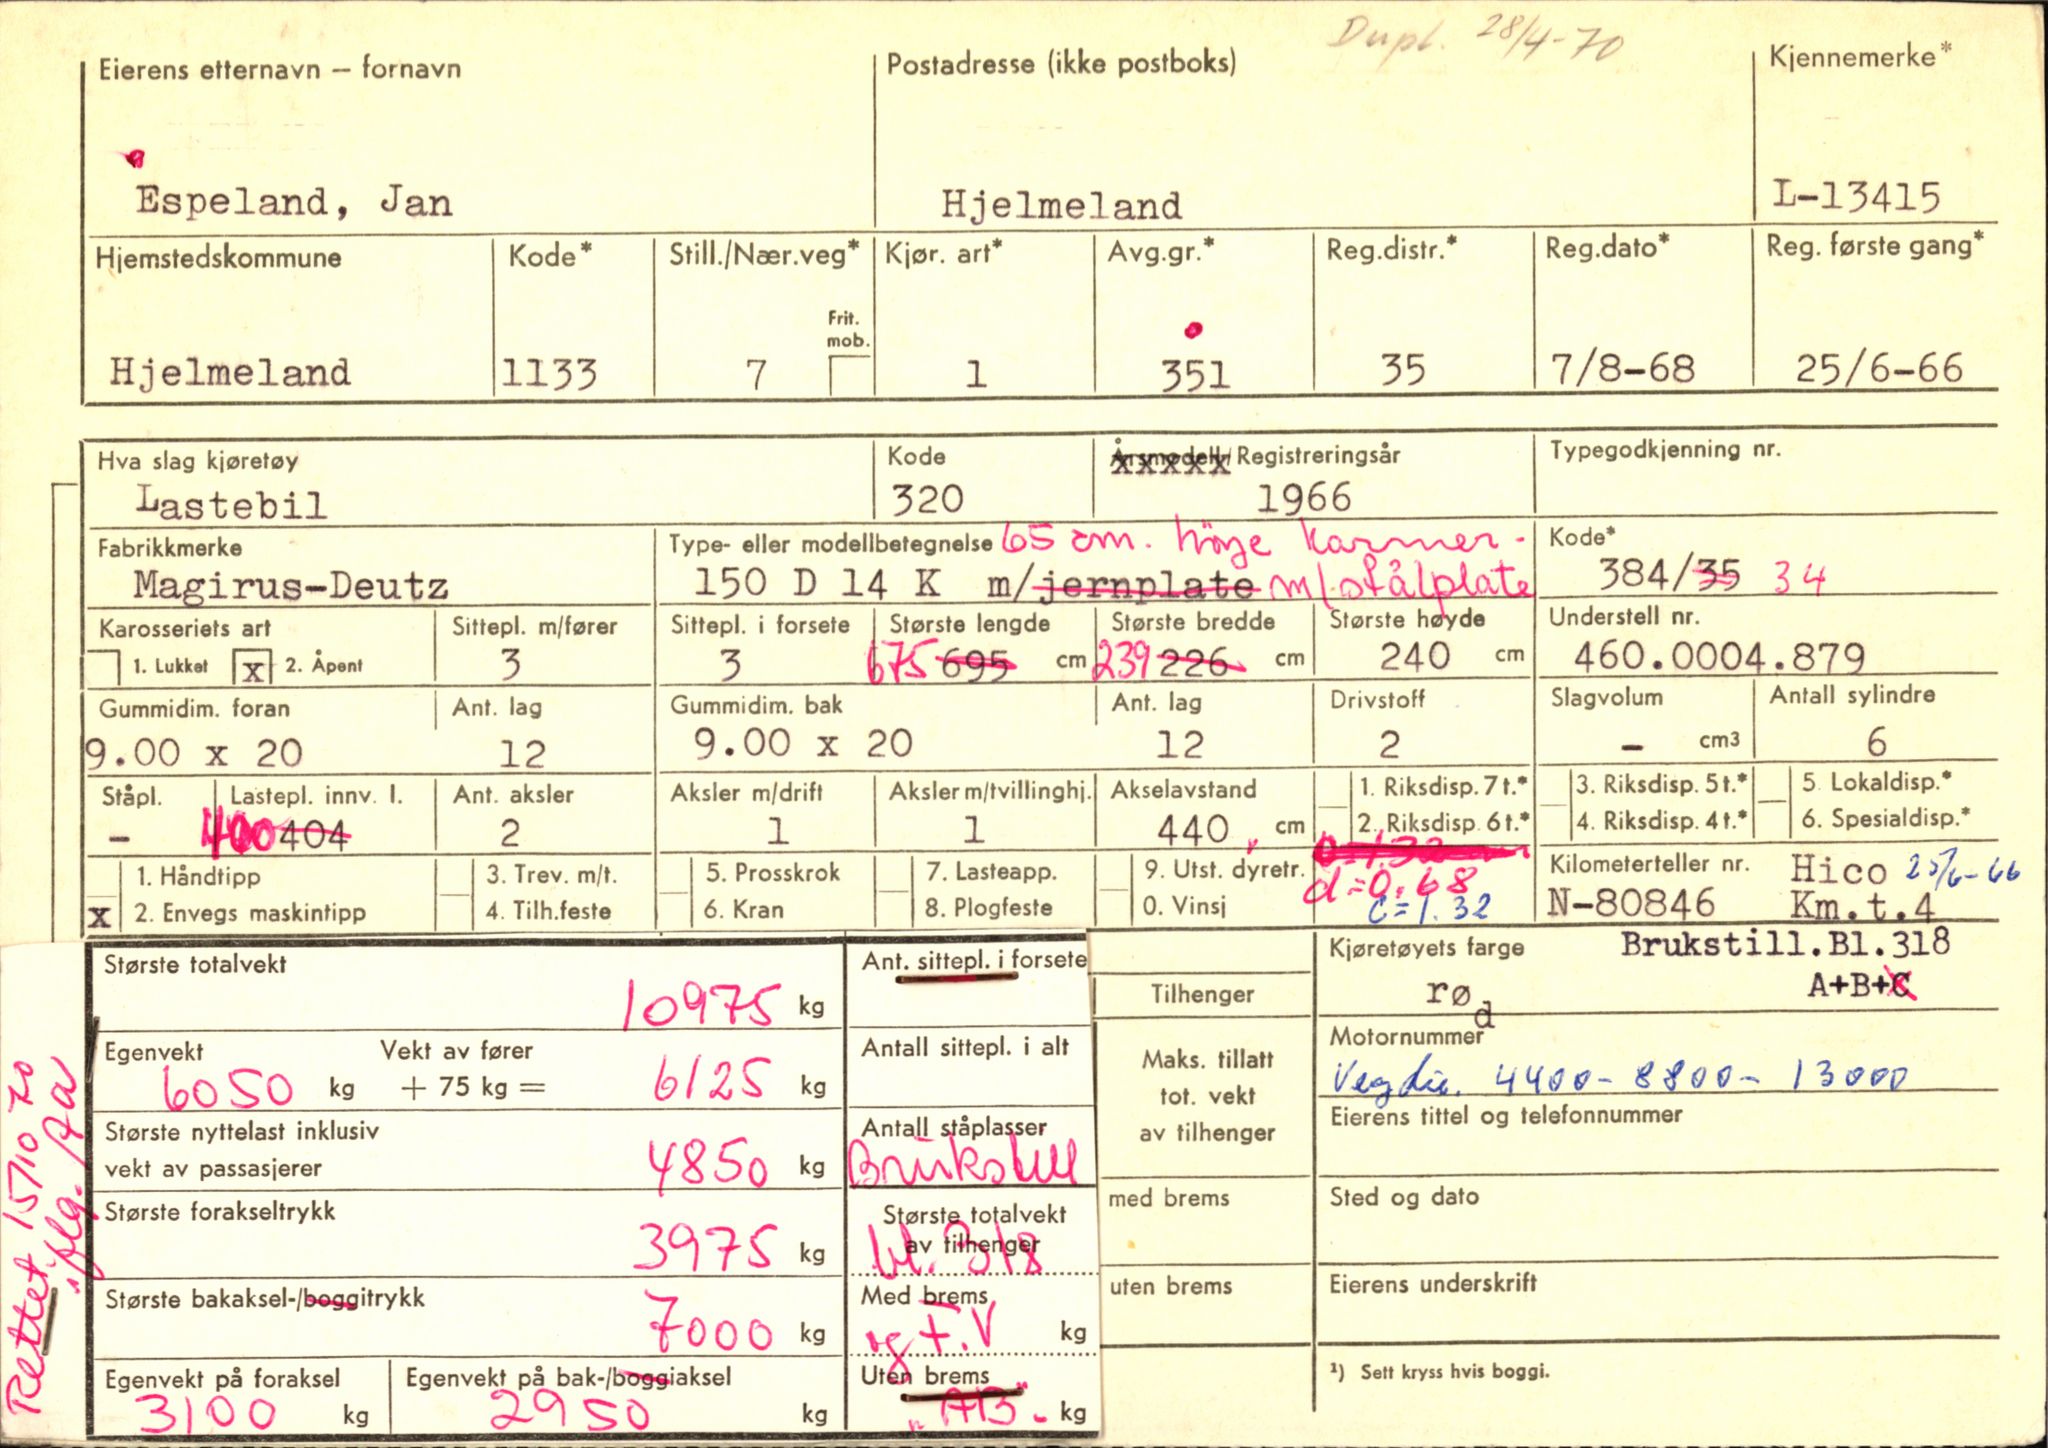 Dupl. 28/4-70
Eierens etternavn – fornavn
Postadresse (ikke postboks)
Kjennemerke*
Espeland, Jan
Hjelmeland
L-13415
Hjemstedskommune
Kode*
Still./Nær.veg*
Kjør. art*
Avg.gr.*
Reg.distr.*
Reg.dato*
Reg. første gang*
Frit.
mob.
Hjelmeland
1133
7
1
351
35
7/8-68
25/6-66
Hva slag kjøretøy
Kode
Årsmodell/Registreringsår
Typegodkjenning nr.
Lastebil
320
1966
Fabrikkmerke
Type- eller modellbetegnelse 65 cm. höye karmer-
Kode*
Magirus-Deutz
150 D 14 K m/jernplate m/stålplate
384/35 34
Karosseriets art
Sittepl. m/fører
Sittepl. i forsete
Største lengde
Største bredde
Største høyde
Understell nr.
1. Lukket
x 2. Åpent
3
3
675 695 cm
239 226 cm
240 cm
460.0004.879
Gummidim. foran
Ant. lag
Gummidim. bak
Ant. lag
Drivstoff
Slagvolum
Antall sylindre
9.00 x 20
12
9.00 x 20
12
2
- cm3
6
Ståpl.
Lastepl. innv. l.
Ant. aksler
Aksler m/drift
Aksler m/tvillinghj.
Akselavstand
1. Riksdisp. 7 t.*
3. Riksdisp. 5 t.*
5. Lokaldisp.*
-
400 404
2
1
1
440 cm
2. Riksdisp. 6 t.*
4. Riksdisp. 4 t.*
6. Spesialdisp.*
1. Håndtipp
3. Trev. m/t.
5. Prosskrok
7. Lasteapp.
9. Utst. dyretr.
d=0.68
Kilometerteller nr.
Hico 25/6-66
x 2. Envegs maskintipp
4. Tilh.feste
6. Kran
8. Plogfeste
0. Vinsj
c=1.32
N-80846
Km.t.4
Største totalvekt
10975 kg
Ant. sittepl. i forsete
Tilhenger
Kjøretøyets farge
Brukstill.Bl.318
rød
A+B+C
Egenvekt
Vekt av fører
6050 kg + 75 kg = 6125 kg
Antall sittepl. i alt
Maks. tillatt
tot. vekt
av tilhenger
Motornummer
Vegdir. 4400-8800-13000
Største nyttelast inklusiv
vekt av passasjerer
4850 kg
Antall ståplasser
Brukstill
Eierens tittel og telefonnummer
Største forakseltrykk
3975 kg
Største totalvekt
av tilhenger
bl. 318
med brems
Sted og dato
Største bakaksel-/boggitrykk
7000 kg
Med brems
og T.V kg
uten brems
Eierens underskrift
Egenvekt på foraksel
3100 kg
Egenvekt på bak-/boggiaksel
2950 kg
Uten brems
kg
¹) Sett kryss hvis boggi.
Rettet 15/10 70